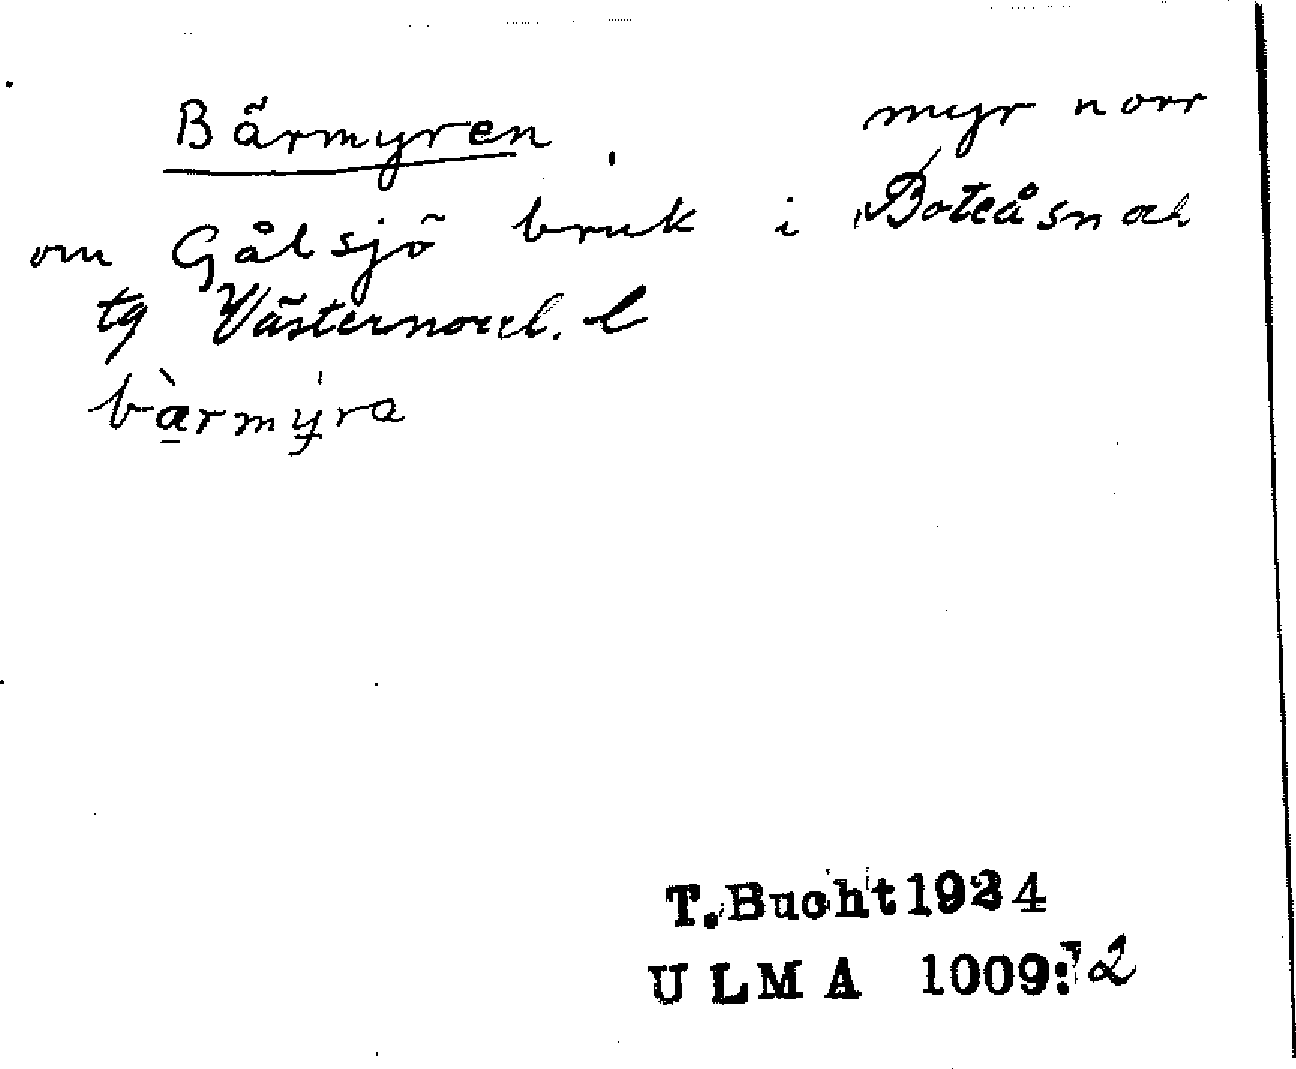 Bärmyren, myr norr
om Gålsjö bruk i Boteåsn ach
tg Västernorrl. l
bàrmýra
T. Bucht 1924
ULMA 1009: 2